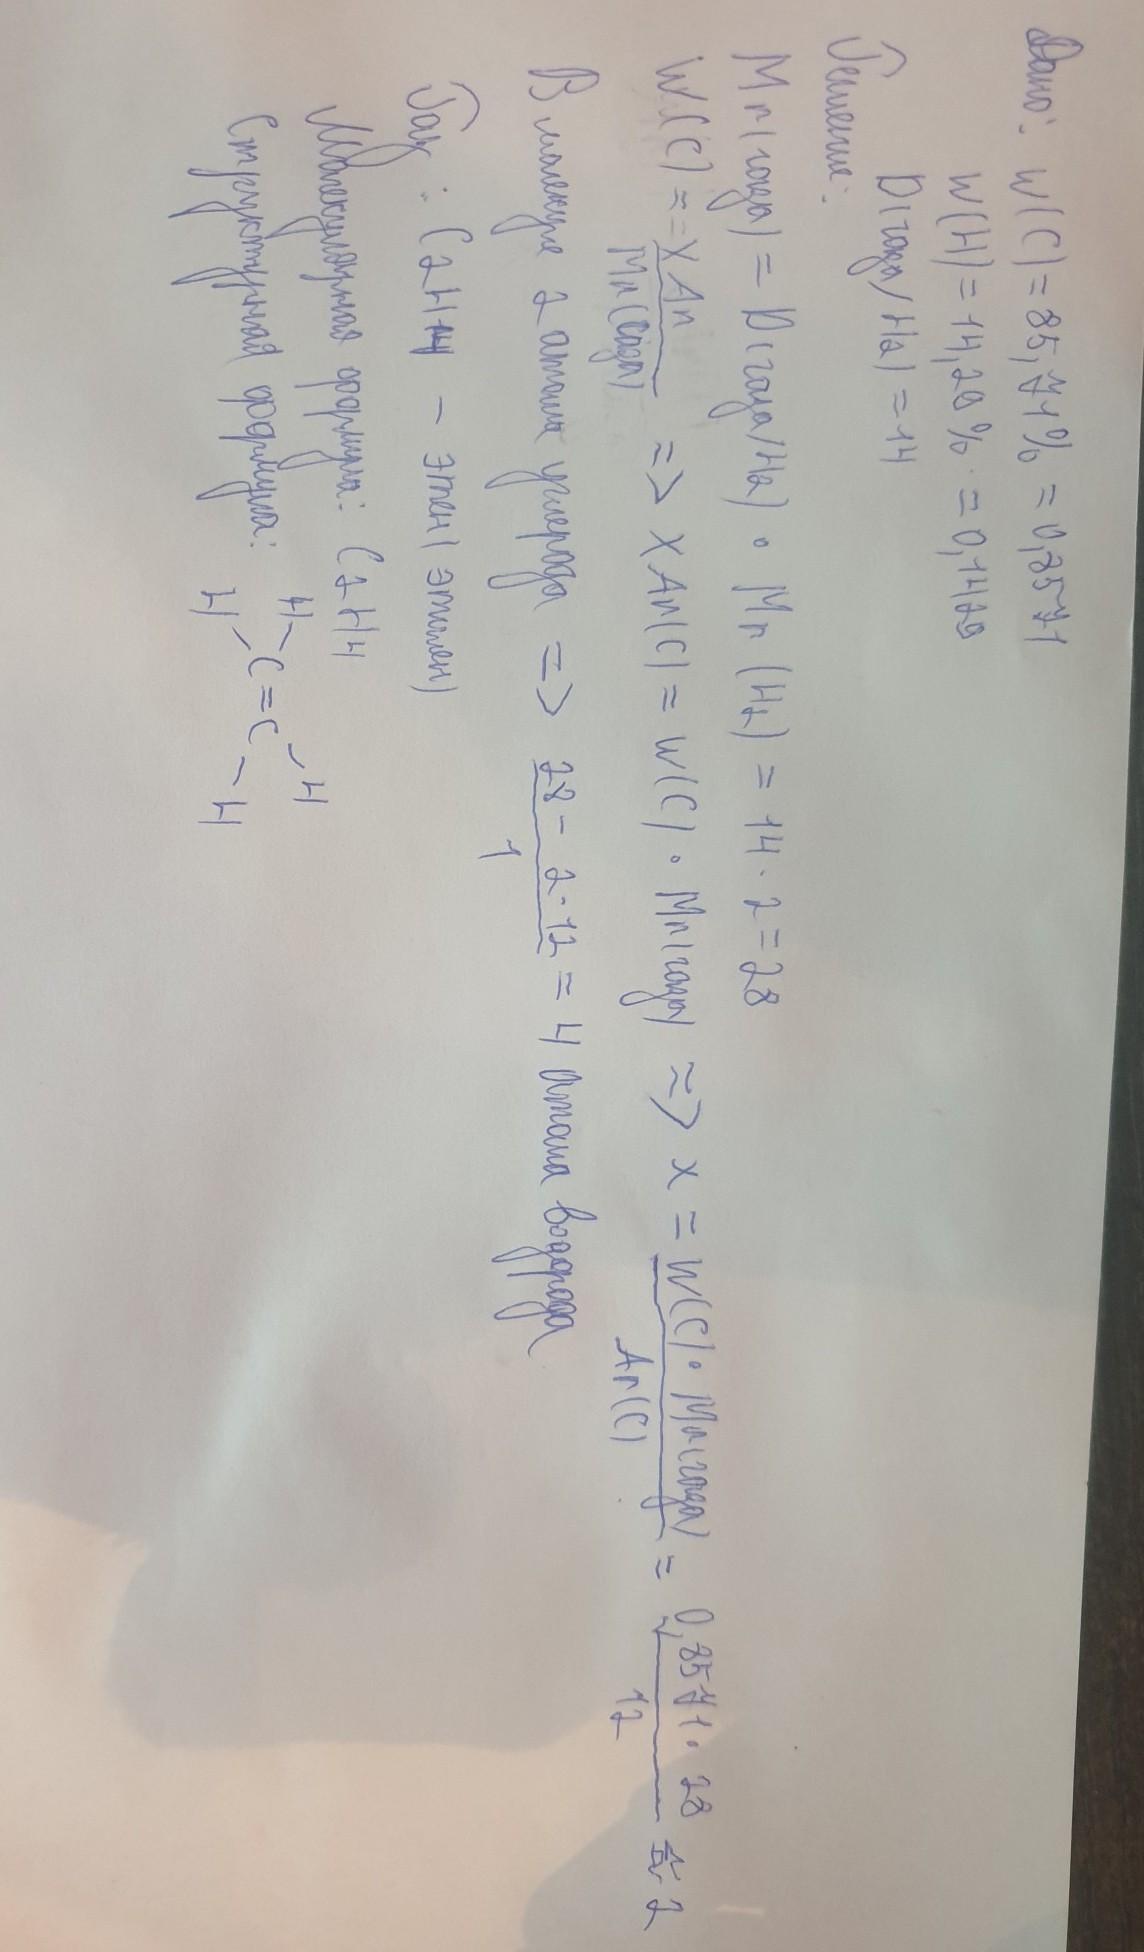 Дано: W(C) = 85,71% = 0,8571
W(H) = 14,20% = 0,1429
D(газа/H2) = 14
Решение:
Mr(газа) = D(газа/H2) · Mr (H2) = 14 · 2 = 28
W(C) = = xAr / Mr(газа) => xAr(C) = W(C) · Mr(газа) => x = W(C) · Mr(газа) / Ar(C) = 0,8571 · 28 / 12 ≈ 2
В молекуле 2 атома углерода => 28 - 2·12 / 1 = 4 атома водорода
Газ: C2H4 - этен (этилен)
Молекулярная формула: C2H4
Структурная формула: H H C=C H H